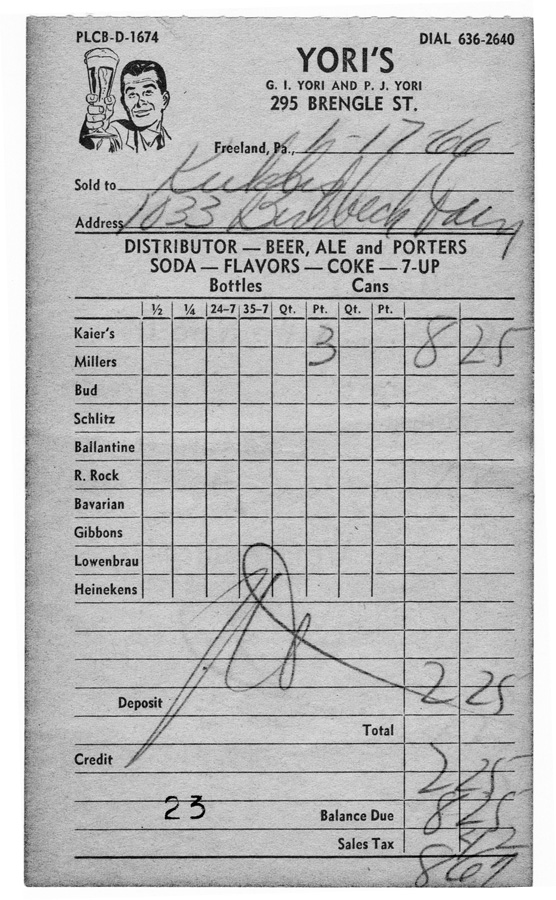 PLCB-D-1674 DIAL 636-2640
YORI'S
G. I. YORI AND P. J. YORI
295 BRENGLE ST.
Freeland, Pa., -17-66
Sold to
Address 1033
DISTRIBUTOR — BEER, ALE and PORTERS
SODA — FLAVORS — COKE — 7-UP
Bottles Cans
½ ¼ 24-7 35-7 Qt. Pt. Qt. Pt.
Kaier's
Millers 3 8 25
Bud
Schlitz
Ballantine
R. Rock
Bavarian
Gibbons
Lowenbrau
Heinekens
Deposit 2 25
Total
Credit 2 25
23 Balance Due 8 25
Sales Tax 42
8 67